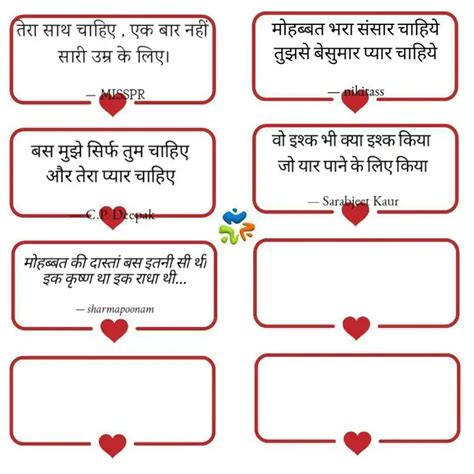 तेरा साथ चाहिए , एक बार नहीं
सारी उम्र के लिए।
— MISSPR
मोहब्बत भरा संसार चाहिये
तुझसे बेसुमार प्यार चाहिये
— nikitass
बस मुझे सिर्फ तुम चाहिए
और तेरा प्यार चाहिए
— C.P. Deepak
वो इश्क भी क्या इश्क किया
जो यार पाने के लिए किया
— Sarabjeet Kaur
मोहब्बत की दास्तां बस इतनी सी थी
इक कृष्ण था इक राधा थी...
— sharmapoonam